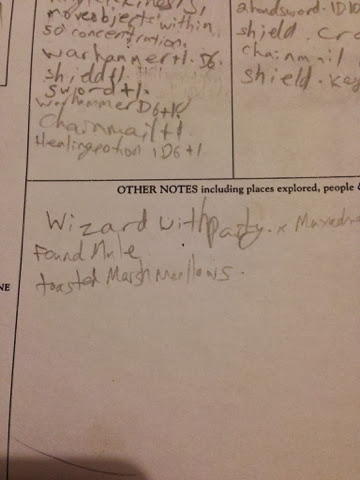 move objects within
50 concentration.
warhammer+1. D6
shield+1.
sword+1.
warhammer D6+1
Chainmail+1
Healing potion 1D6+1
2handsword. 1D10
shield.
chainmail
shield. Key
OTHER NOTES including places explored, people &
Wizard with party. x
Found Mule
toasted Marshmellows.
NE